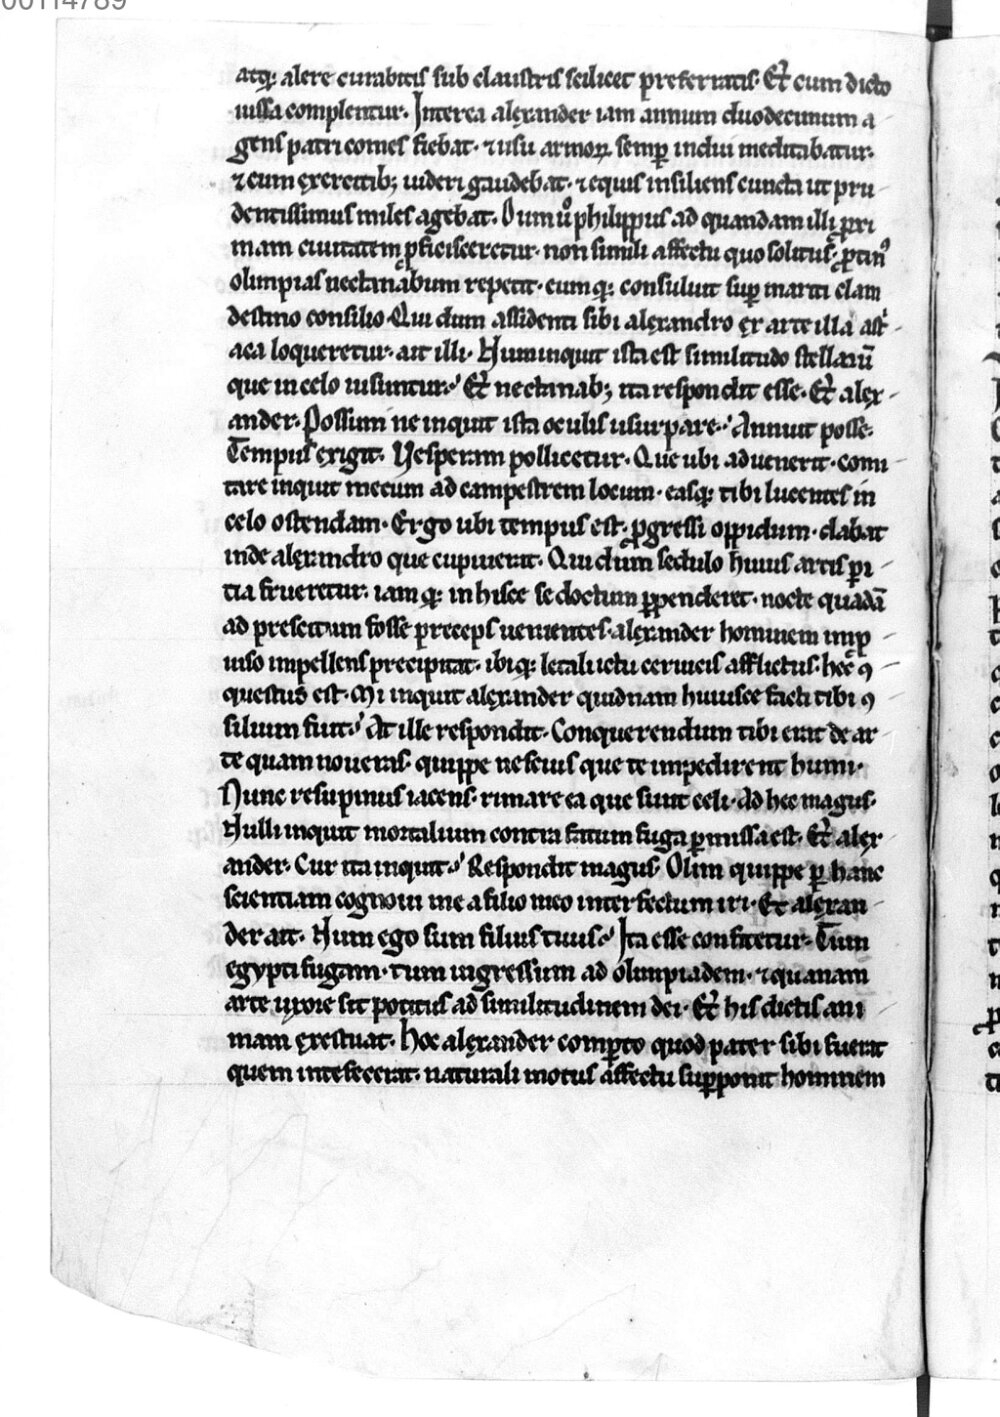 00114789
atq; alere curabitis sub claustris scilicet preferratis. Et cum dicto
iussa complentur. Interea alexander iam annum duodecimum a
gens patri comes fiebat. ⁊ usu armoꝝ semꝑ indui meditabatur.
⁊ cum exercitib; uideri gaudebat. ⁊ equis insiliens cuncta ut pru-
dentissimus miles agebat. Dum uͦ philippus ad quandam illi pri
mam ciuitatem ꝓficisceretur. non simili affectu quo solitus. ꝓtinꝰ
olimpias nectanabum repetit. eumq; consuluit suꝑ mariti clam
destino consilio. Qui dum assidenti sibi alexandro ex arte illa ast-
aca loqueretur. ait illi. Num inquit ista est similitudo stellarū
que in celo uisuntur. Et nectanab; ita respondit esse. Et alex-
ander. Possum ne inquit ista oculis usurpare. Annuit posse.
Tempus exigit. Vesperam pollicetur. Que ubi aduenerit. comi-
tare inquit mecum ad campestrem locum. easq; tibi lucentes in
celo ostendam. Ergo ubi tempus est. ꝓgressi oppidum. dabat
inde alexandro que cupiuerat. Qui dum sedulo huius artis ꝑi-
tia frueretur. iamq; in hisce se doctum ꝑpenderet. nocte quadā
ad prescitum fosse preceps uenientes. alexander hominem impꝓ-
uiso impellens precipitat. ibiq; letali ictu ceruicis afflictus. hec ꝯ-
questus est. Mi inquit alexander quidnam huiusce facti tibi ꝯ-
silium fuit. At ille respondit. Conquerendum tibi erat de ar
te quam noueras. quippe nescius que te impedirent humi.
Nunc resupinus iacens. rimare ea que sunt celi. Ad hec magus.
Nulli inquit mortalium contra fatum fuga ꝑmissa est. Et alex
ander. Cur ita inquit. Respondit magus. Olim quippe ꝑ hanc
scientiam cognoui me a filio meo interfectum iri. Et alexan-
der ait. Num ego sum filius tuus. Ita esse confitetur. Tum
egypti fugam. tum ingressum ad olimpiadem. ⁊ quanam
arte uxore sit potitus ad similitudinem dei. Et his dictis ani
mam exestuat. Hoc alexander comꝑto quod pater sibi fuerat
quem intefecerat. naturali motus affectu suꝑponit hominem